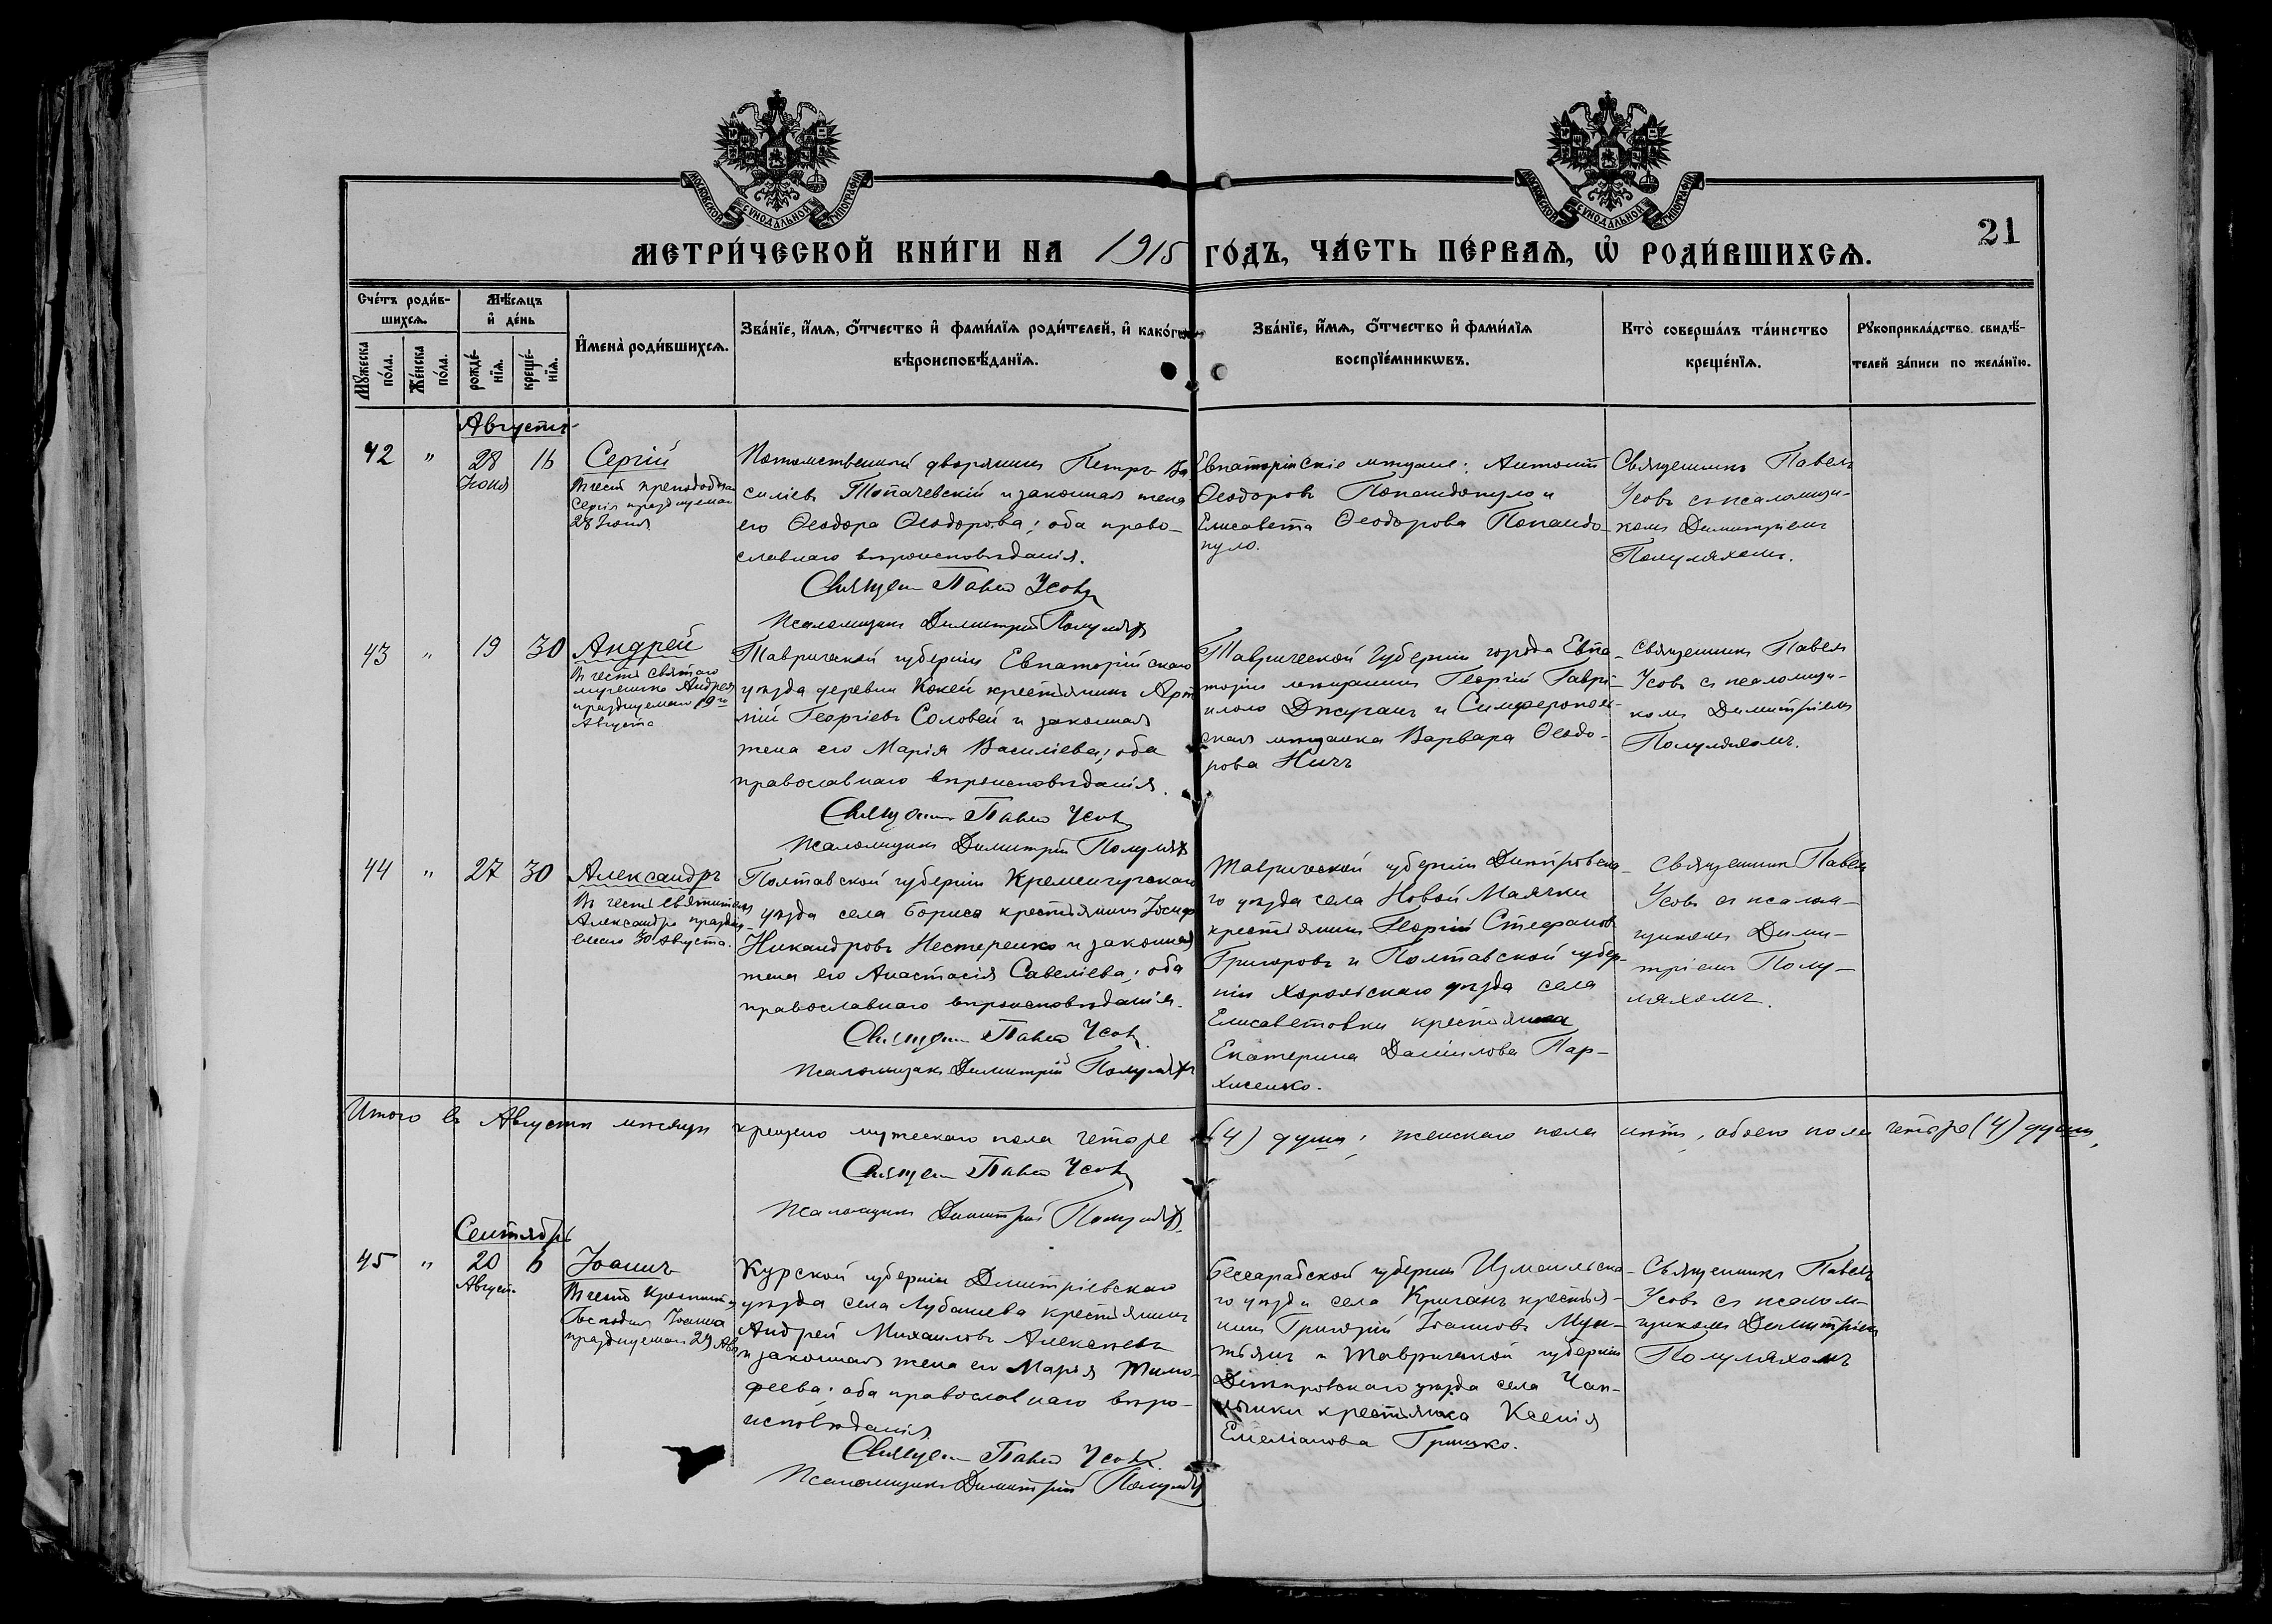 МОСКОВСКОЙ СУНОДАЛЬНОЙ ТИПОГРАФІИ
МОСКОВСКОЙ СУНОДАЛЬНОЙ ТИПОГРАФІИ
21
МЕТРИ́ЧЕСКОЙ КНИ́ГИ НА 1915 ГО́ДЪ, ЧА́СТЬ ПЕ́РВАѦ, Ѡ҆ РОДИ́ВШИХСѦ.
Сче́тъ роди́в-
шихсѧ.
Мꙋ́жеска по́ла.
Же́нска по́ла.
Мѣ́сѧцъ
и҆ де́нь
рожде́-
нїѧ.
креще́-
нїѧ.
И҆мена̀ роди́вшихсѧ.
Зва́нїе, и҆́мѧ, ѻ҆́тчество и҆ фами́лїѧ роди́телей, и҆ како́гѡ
вѣроисповѣ́данїѧ.
Зва́нїе, и҆́мѧ, ѻ҆́тчество и҆ фами́лїѧ
воспрїе́мникѡвъ.
Кто̀ соверша́лъ та́инство
креще́нїѧ.
Рꙋкоприкла́дство свидѣ́-
телей за́писи по жела́нїю.
Августъ
42 " 28 Іюня 16
Сергій
Въ честь преподобнаго
Сергія празднуемаго
28 Іюня
Потомственный дворянинъ Петръ Ва
силіевъ Топачевскій и законная жена
его Ѳеодора Ѳеодорова; оба право-
славнаго вѣроисповѣданія.
Священ Павелъ Усовъ
Псаломщикъ Димитрій Полулях
Евпаторійскіе мѣщане: Антоній
Ѳеодоровъ Попандопуло и
Елисавета Ѳеодорова Попандо-
пуло.
Священникъ Павелъ
Усовъ съ псаломщи-
комъ Димитріемъ
Полуляхомъ.
43 " 19 30
Андрей
Въ честь святаго
мученика Андрея
празднуемаго 19го
Августа
Таврической губерніи Евпаторійскаго
уѣзда деревни Кокей крестьянинъ Арте
мій Георгіевъ Соловей и законная
жена его Марія Василіева; оба
православнаго вѣроисповѣданія.
Священ Павелъ Усовъ
Псаломщикъ Димитрій Полулях
Таврической Губерніи города Евпа-
торіи мѣщанинъ Георгій Гаврі-
иловъ и Симферополь-
ская мѣщанка Варвара Ѳеодо-
рова Ничъ
Священникъ Павелъ
Усовъ съ псаломщи-
комъ Димитріемъ
Полуляхомъ.
44 " 27 30
Александръ
Въ честь святителя
Александра праздну-
емаго 30 Августа.
Полтавской губерніи Кременчугскаго
уѣзда села Бориса крестьянинъ Іосиф
Никандровъ Нестеренко и законная
жена его Анастасія Савеліева; оба
православнаго вѣроисповѣданія.
Священ Павелъ Усовъ
Псаломщикъ Димитрій Полулях
Таврической губерніи Днѣпровска-
го уѣзда села Новой Маячки
крестьянинъ Георгій Стефановъ
Григоровъ и Полтавской губер-
ніи Хорольскаго уѣзда села
Елисаветовки крестьянка
Екатерина Даніилова Пар-
хисенко.
Священникъ Павелъ
Усовъ съ псалом-
щикомъ Дими-
тріемъ Полу-
ляхомъ.
Итого въ Августѣ мѣсяцѣ крещено мужескаго пола четыре (4) души, женскаго пола нѣтъ, обоего пола четыре (4) души,
Священ Павелъ Усовъ
Псаломщикъ Димитрій Полулях
Сентябрь
45 " 20 Август. 6
Іоаннъ
Въ честь Крестителя
Господня Іоанна
празднуемаго 29 Авг
Курской губерніи Дмитріевскаго
уѣзда села Лубашева крестьянинъ
Андрей Михаиловъ Алексѣевъ
и законная жена его Марія Тимо-
феева; оба православнаго вѣро-
исповѣданія.
Священ Павелъ Усовъ
Псаломщикъ Димитрій Полулях
Бессарабской губерніи Измаильска-
го уѣзда села Криганъ крестья-
нинъ Григорій Іоанновъ Мун-
тьянъ и Таврической губерніи
Днѣпровскаго уѣзда села Чап-
лынки крестьянка Ксенія
Емеліанова Гришко.
Священникъ Павелъ
Усовъ съ псалом-
щикомъ Димитріемъ
Полуляхомъ